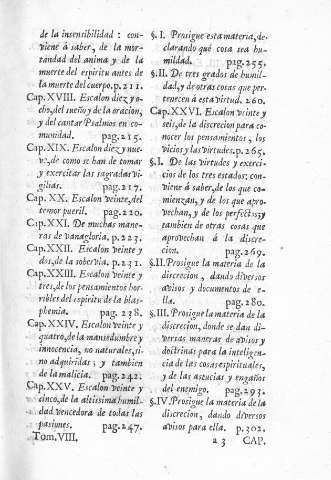 de la insensibilidad : con-
viene á saber, de la mor-
tandad del anima y de la
muerte del espiritu antes de
la muerte del cuerpo. p.211.
Cap. XVIII. Escalon diez y o-
cho, del sueño y de la oracion,
y del cantar Psalmos en co-
munidad. pag.215.
Cap. XIX. Escalon diez y nue-
ve, de como se han de tomar
y exercitar las sagradas vi-
gilias. pag.217.
Cap. XX. Escalon veinte, del
temor pueril. pag.220.
Cap. XXI. De muchas mane-
ras de vanagloria. p.223.
Cap. XXII. Escalon veinte y
dos, de la sobervia. p.231.
Cap. XXIII. Escalon veinte y
tres, de los pensamientos hor-
ribles del espiritu de la blas-
phemia. pag. 238.
Cap. XXIV. Escalon veinte y
quatro, de la mansedumbre y
innocencia, no naturales, si-
no adquiridas ; y tambien
de la malicia. pag.242.
Cap. XXV. Escalon veinte y
cinco, de la altissima humil-
dad vencedora de todas las
pasiones. pag.247.
Tom. VIII.
§. I. Prosigue esta materia, de-
clarando qué cosa sea hu-
mildad. pag.255.
§. II. De tres grados de humil-
dad, y de otras cosas que per-
tenecen á esta virtud. 260.
Cap. XXVI. Escalon veinte y
seis, de la discrecion para co-
nocer los pensamientos , los
vicios y las virtudes. p.265.
§. I. De las virtudes y exerci-
cios de los tres estados; con-
viene á saber, de los que co-
mienzan, y de los que apro-
vechan, y de los perfectos; y
tambien de otras cosas que
aprovechan á la discre-
cion. pag.269.
§. II. Prosigue la materia de la
discrecion , dando diversos
avisos y documentos de e-
lla. pag.280.
§. III. Prosigue la materia de la
discrecion, donde se dan di-
versas maneras de avisos y
doctrinas para la inteligen-
cia de las cosas espirituales,
y de las astucias y engaños
del enemigo. pag.293.
§. IV. Prosigue la materia de la
discrecion, dando diversos
avisos para ella. p.302.
a 3 CAP.